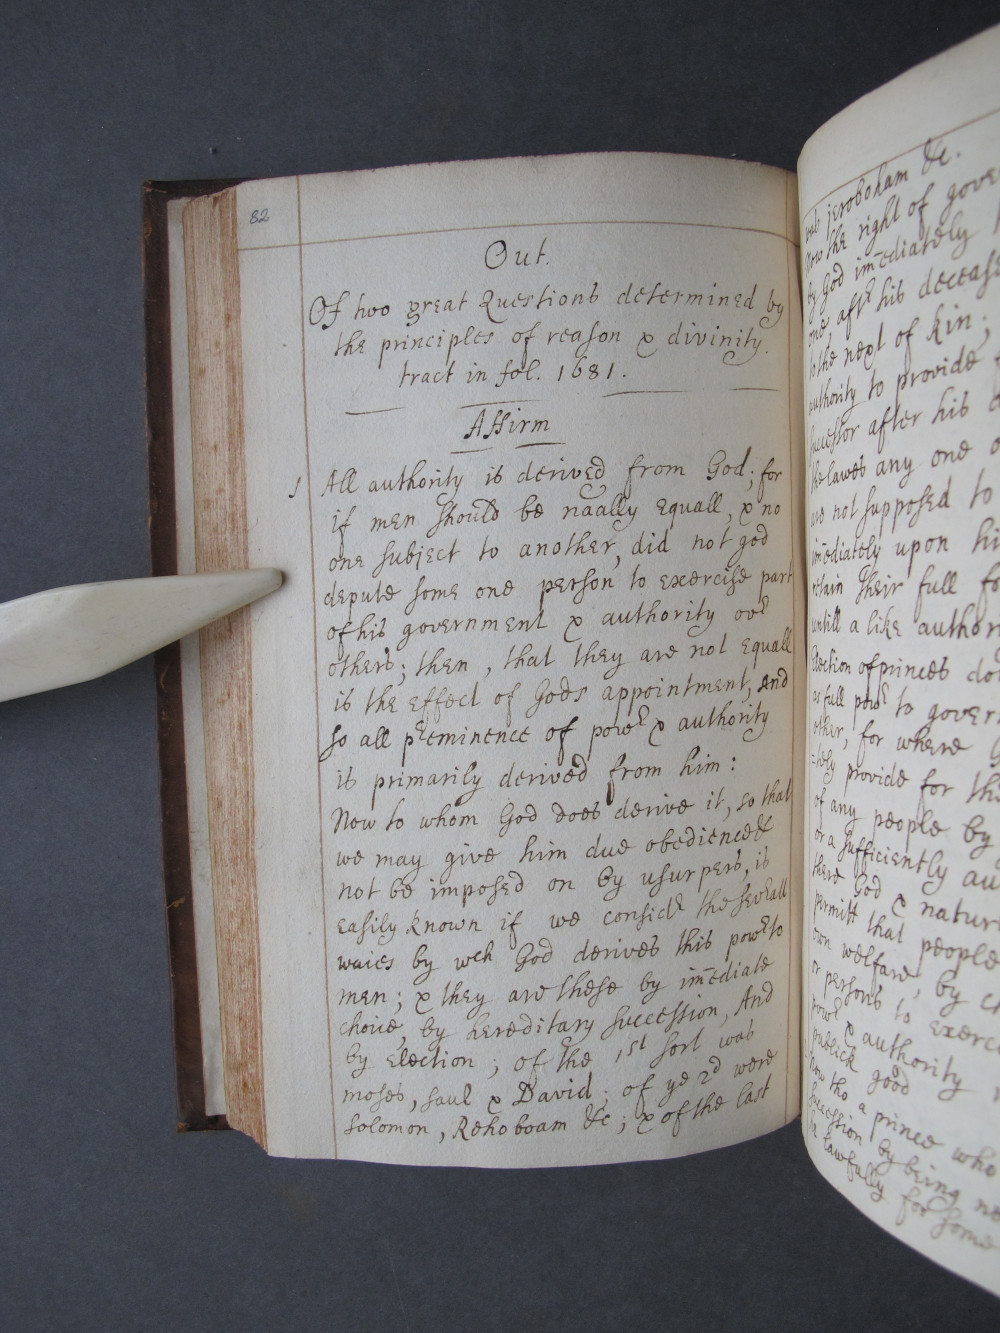 82
Out.
Of two great Questions determined by
the principles of reason & divinity.
tract in fol. 1681.
Affirm
1 All authority is derived from God; for
if men should be naally equall, & no
one subject to another, did not god
depute some one person to exercise part
of his government & authority ovr
others; then, that they are not equall
is the effect of Gods appointment, and
so all preminence of powr & authority
is primarily derived from him:
Now to whom God does derive it, so that
we may give him due obedience &
not be imposed on by usurpers, is
easily known if we considr the sevrall
waies by wch God derives this powr to
men; & they are these by imediate
choice, by hereditary succession, And
by Election; of the 1st sort was
moses, saul & David; of ye 2d were
solomon, Rehoboam &c; & of the last
was jeroboham &c.
Now the right of gover
by God imediately
one, aftr his decease
to the next of kin;
authority to provide
successor after his
the lawes any one o
are not supposed to
imediately upon hi
retain their full fo
untill a like author
Election of princes do
as full powr to gover
other, for where G
=tely provide for th
of any people by
or a sufficiently au
there God & natur
permitt that people
own welfare, by ch
or persons to exerc
powr & authority
publick good
Now tho a prince who
succession by being ne
be lawfully for some